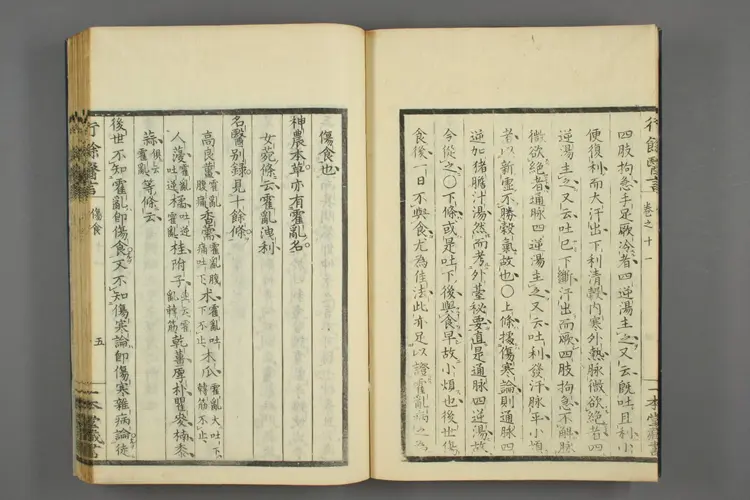 行餘醫言 卷之十一 一本堂藏書
四肢拘急手足厥冷者四逆湯主之又云既吐且利小
便復利而大汗出下利清穀內寒外熱脉微欲絕者四
逆湯主之又云吐已下斷汗出而厥四肢拘急不解脉
微欲絕者通脉四逆湯主之又云吐利發汗脉平小煩
者以新虛不勝穀氣故也〇上條據傷寒論則通脉四
逆加猪膽汁湯然而考外臺秘要直是通脉四逆湯故
今從之〇下條或是吐下後與食早故小煩也後世傷
食後一日不與食尤為佳法此亦足以證霍亂病之為
傷食也
神農本草亦有霍亂名
女菀條云霍亂洩利
名醫別錄見十餘條
高良薑霍亂腹痛香薷霍亂腹痛吐下朮霍亂吐下不止木瓜霍亂大吐下轉筋不止
人薓霍亂吐逆橘吐逆霍亂桂附子霍亂轉筋乾薑厚朴瞿麥楠黍
蒜霍亂等條云
後世不知霍亂即傷食又不知傷寒論即傷寒雜病論徒
行餘醫言 傷食 五 一本堂藏書